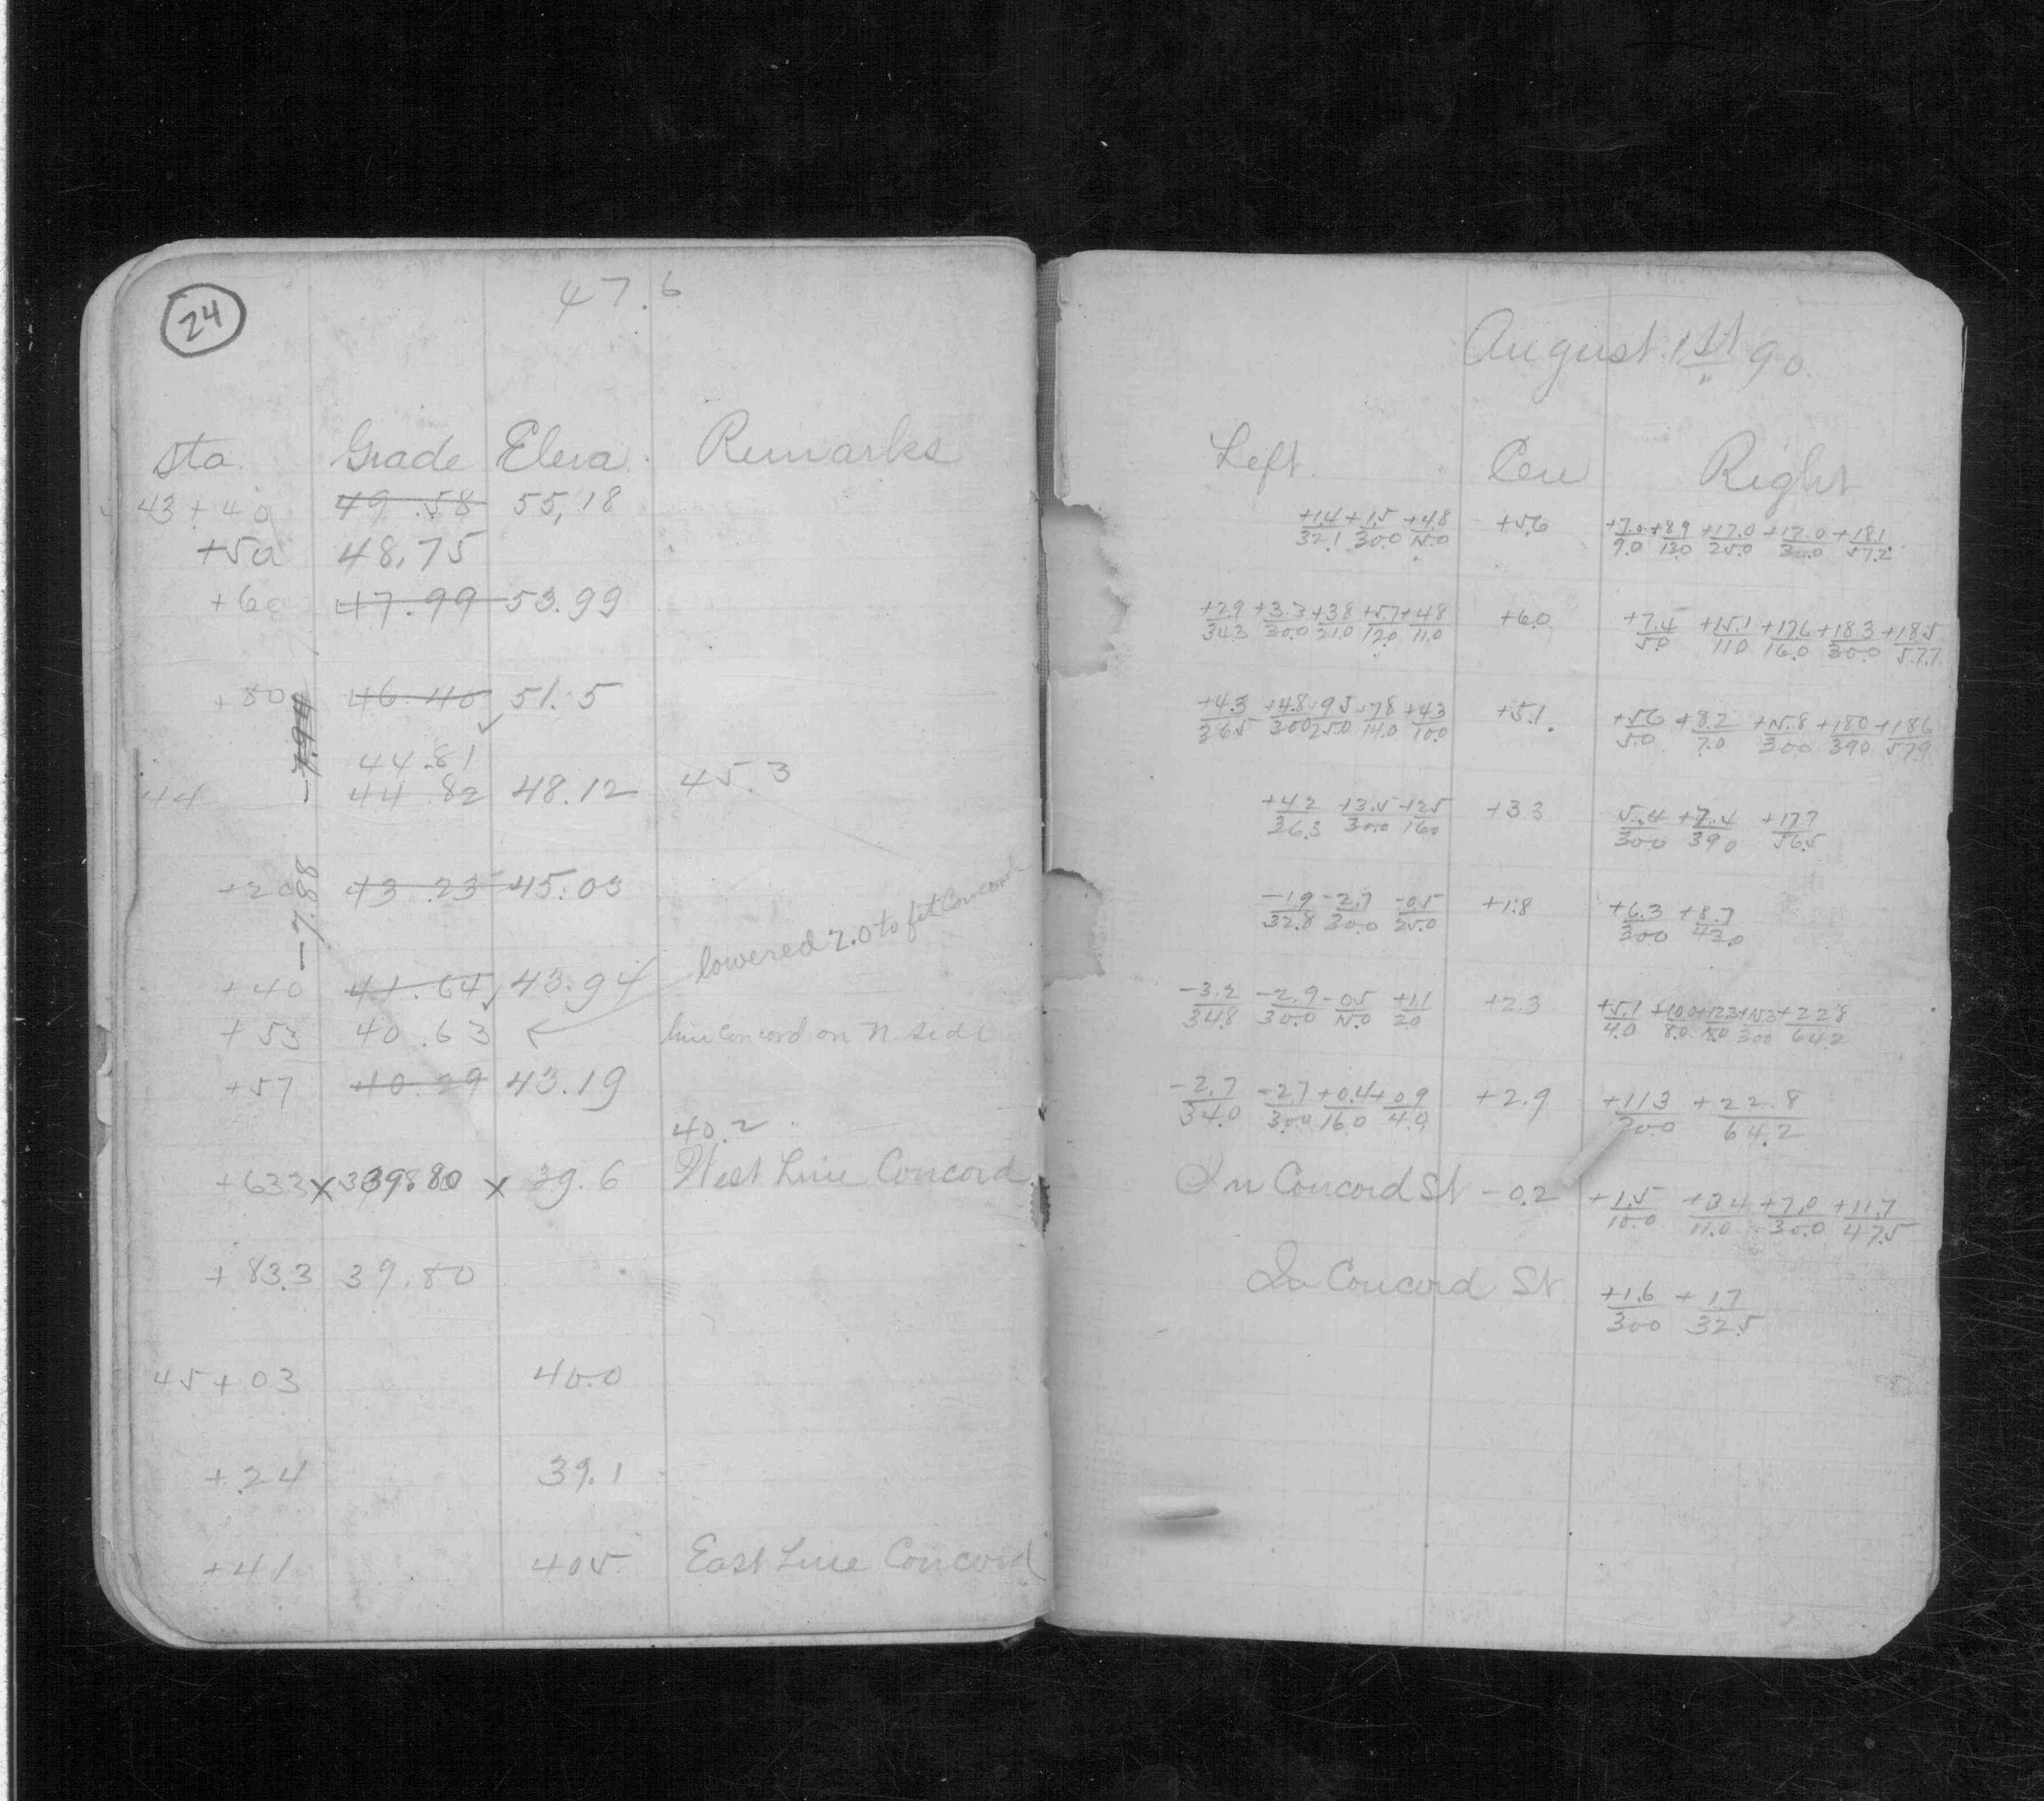 24
47.6
Sta. Grade Eleva. Remarks
43+40 49.58 55,18
+50 48.75
+60 47.99 53.99
+80 46.40 51.5
-7.94
44.81
44 44.82 48.12 45.3
+20 43.23 45.03
-7.88
lowered 2.0 to fit Concord
+40 41.64 43.94
+53 40.63 line Concord on N side
+57 40.29 43.19
40.2
+633 x 39.80 x 39.6 West Line Concord
+83.3 39.80
45+03 40.0
+24 39.1
+41 40.5 East Line Concord
August 1st 90.
Left. Cen Right
+1.4/32.1 +1.5/30.0 +4.8/15.0 +5.6 +7.0/9.0 +8.9/13.0 +17.0/25.0 +17.0/30.0 +18.1/57.2
+2.9/34.3 +3.3/30.0 +3.8/21.0 +5.7/12.0 +4.8/11.0 +6.0 +7.4/5.0 +15.1/11.0 +17.6/16.0 +18.3/30.0 +18.5/57.7
+4.3/36.5 +4.8/30.0 +9.5/25.0 +7.8/14.0 +4.3/10.0 +5.1 +5.6/5.0 +8.2/7.0 +15.8/30.0 +18.0/39.0 +18.6/57.9
+4.2/36.3 +3.5/30.0 +2.5/16.0 +3.3 5.4/30.0 +7.4/39.0 +17.7/56.5
-1.9/32.8 -2.7/30.0 -0.5/25.0 +1.8 +6.3/30.0 +8.7/43.0
-3.2/34.8 -2.9/30.0 -0.5/15.0 +1.1/2.0 +2.3 +5.1/4.0 +10.0/8.0 +12.3/15.0 +15.3/30.0 +22.8/64.2
-2.7/34.0 -2.7/30.0 +0.4/16.0 +0.9/4.9 +2.9 +11.3/30.0 +22.8/64.2
In Concord St -0.2 +1.5/10.0 +3.4/11.0 +7.0/30.0 +11.7/47.5
In Concord St +1.6/30.0 +1.7/32.5